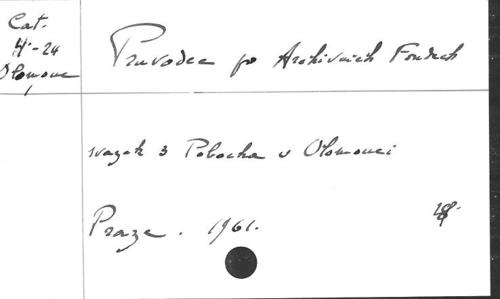 Cat.
4-24
Olomouc
Pruvodce po Archivnich Fondech
svazek 3 Pobocka v Olomouci
Praze. 1961.